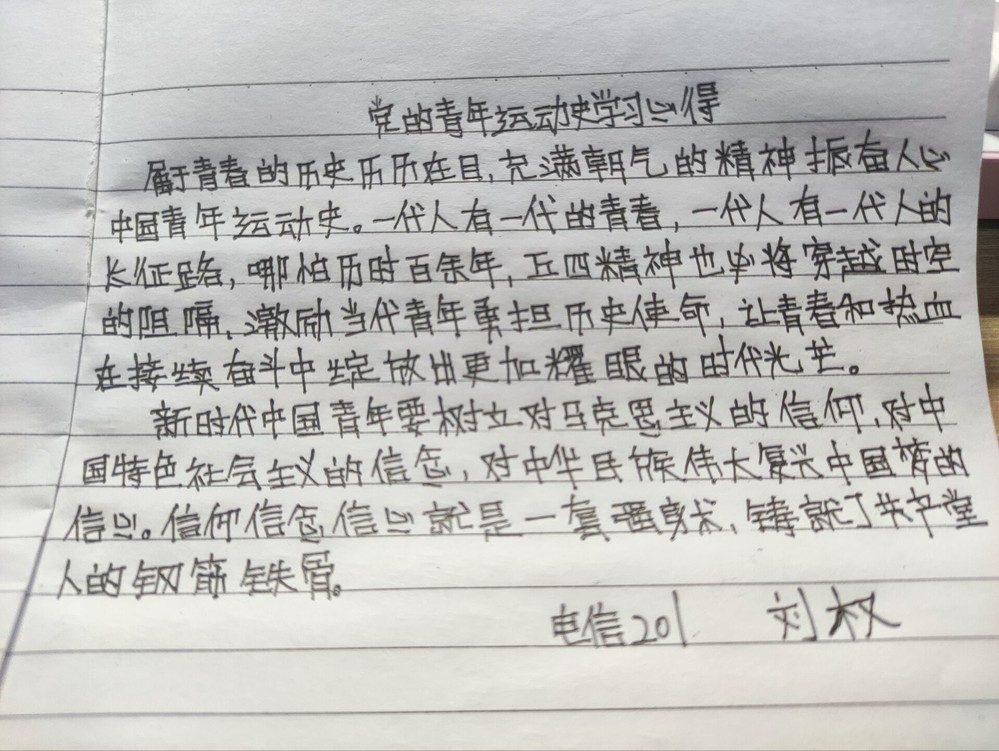 党的青年运动史学习心得
属于青春的历史历历在目,充满朝气的精神振奋人心
中国青年运动史。一代人有一代的青春,一代人有一代人的
长征路,哪怕历时百余年,五四精神也必将穿越时空
的阻隔,激励当代青年勇担历史使命,让青春和热血
在接续奋斗中绽放出更加耀眼的时代光芒。
新时代中国青年要树立对马克思主义的信仰,对中
国特色社会主义的信念,对中华民候伟大复兴中国梦的
信心。信仰信念信心就是一套强身术,铸就了共产堂
人的钢筋铁骨。
电信201 刘权